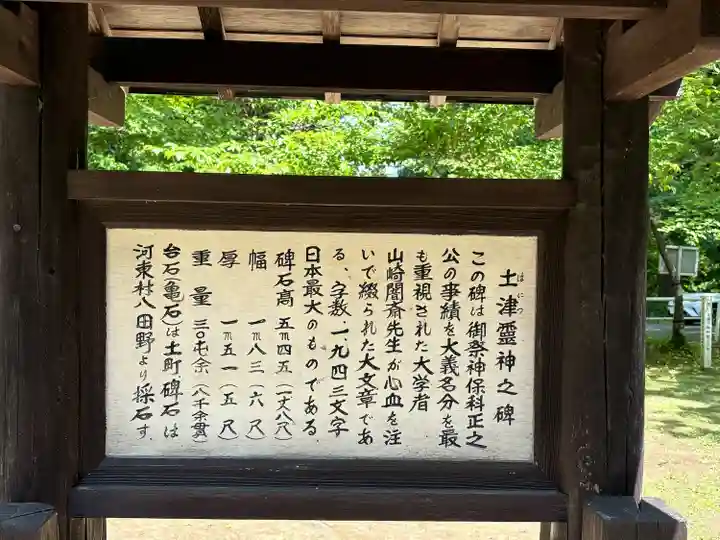 土津霊神之碑
はにつ
この碑は御祭神保科正之
公の事績を大義名分を最
も重視された大学者
山崎闇斎先生が心血を注
いで綴られた大文章であ
る、字数、一、九四三文字
日本最大のものである、
碑石高 五米四五(一丈八尺)
幅 一米八三(六尺)
厚 一米五一(五尺)
重量 三〇屯余(八千余貫)
台石(亀石)は土町、碑石は
河東村八田野より採石す、